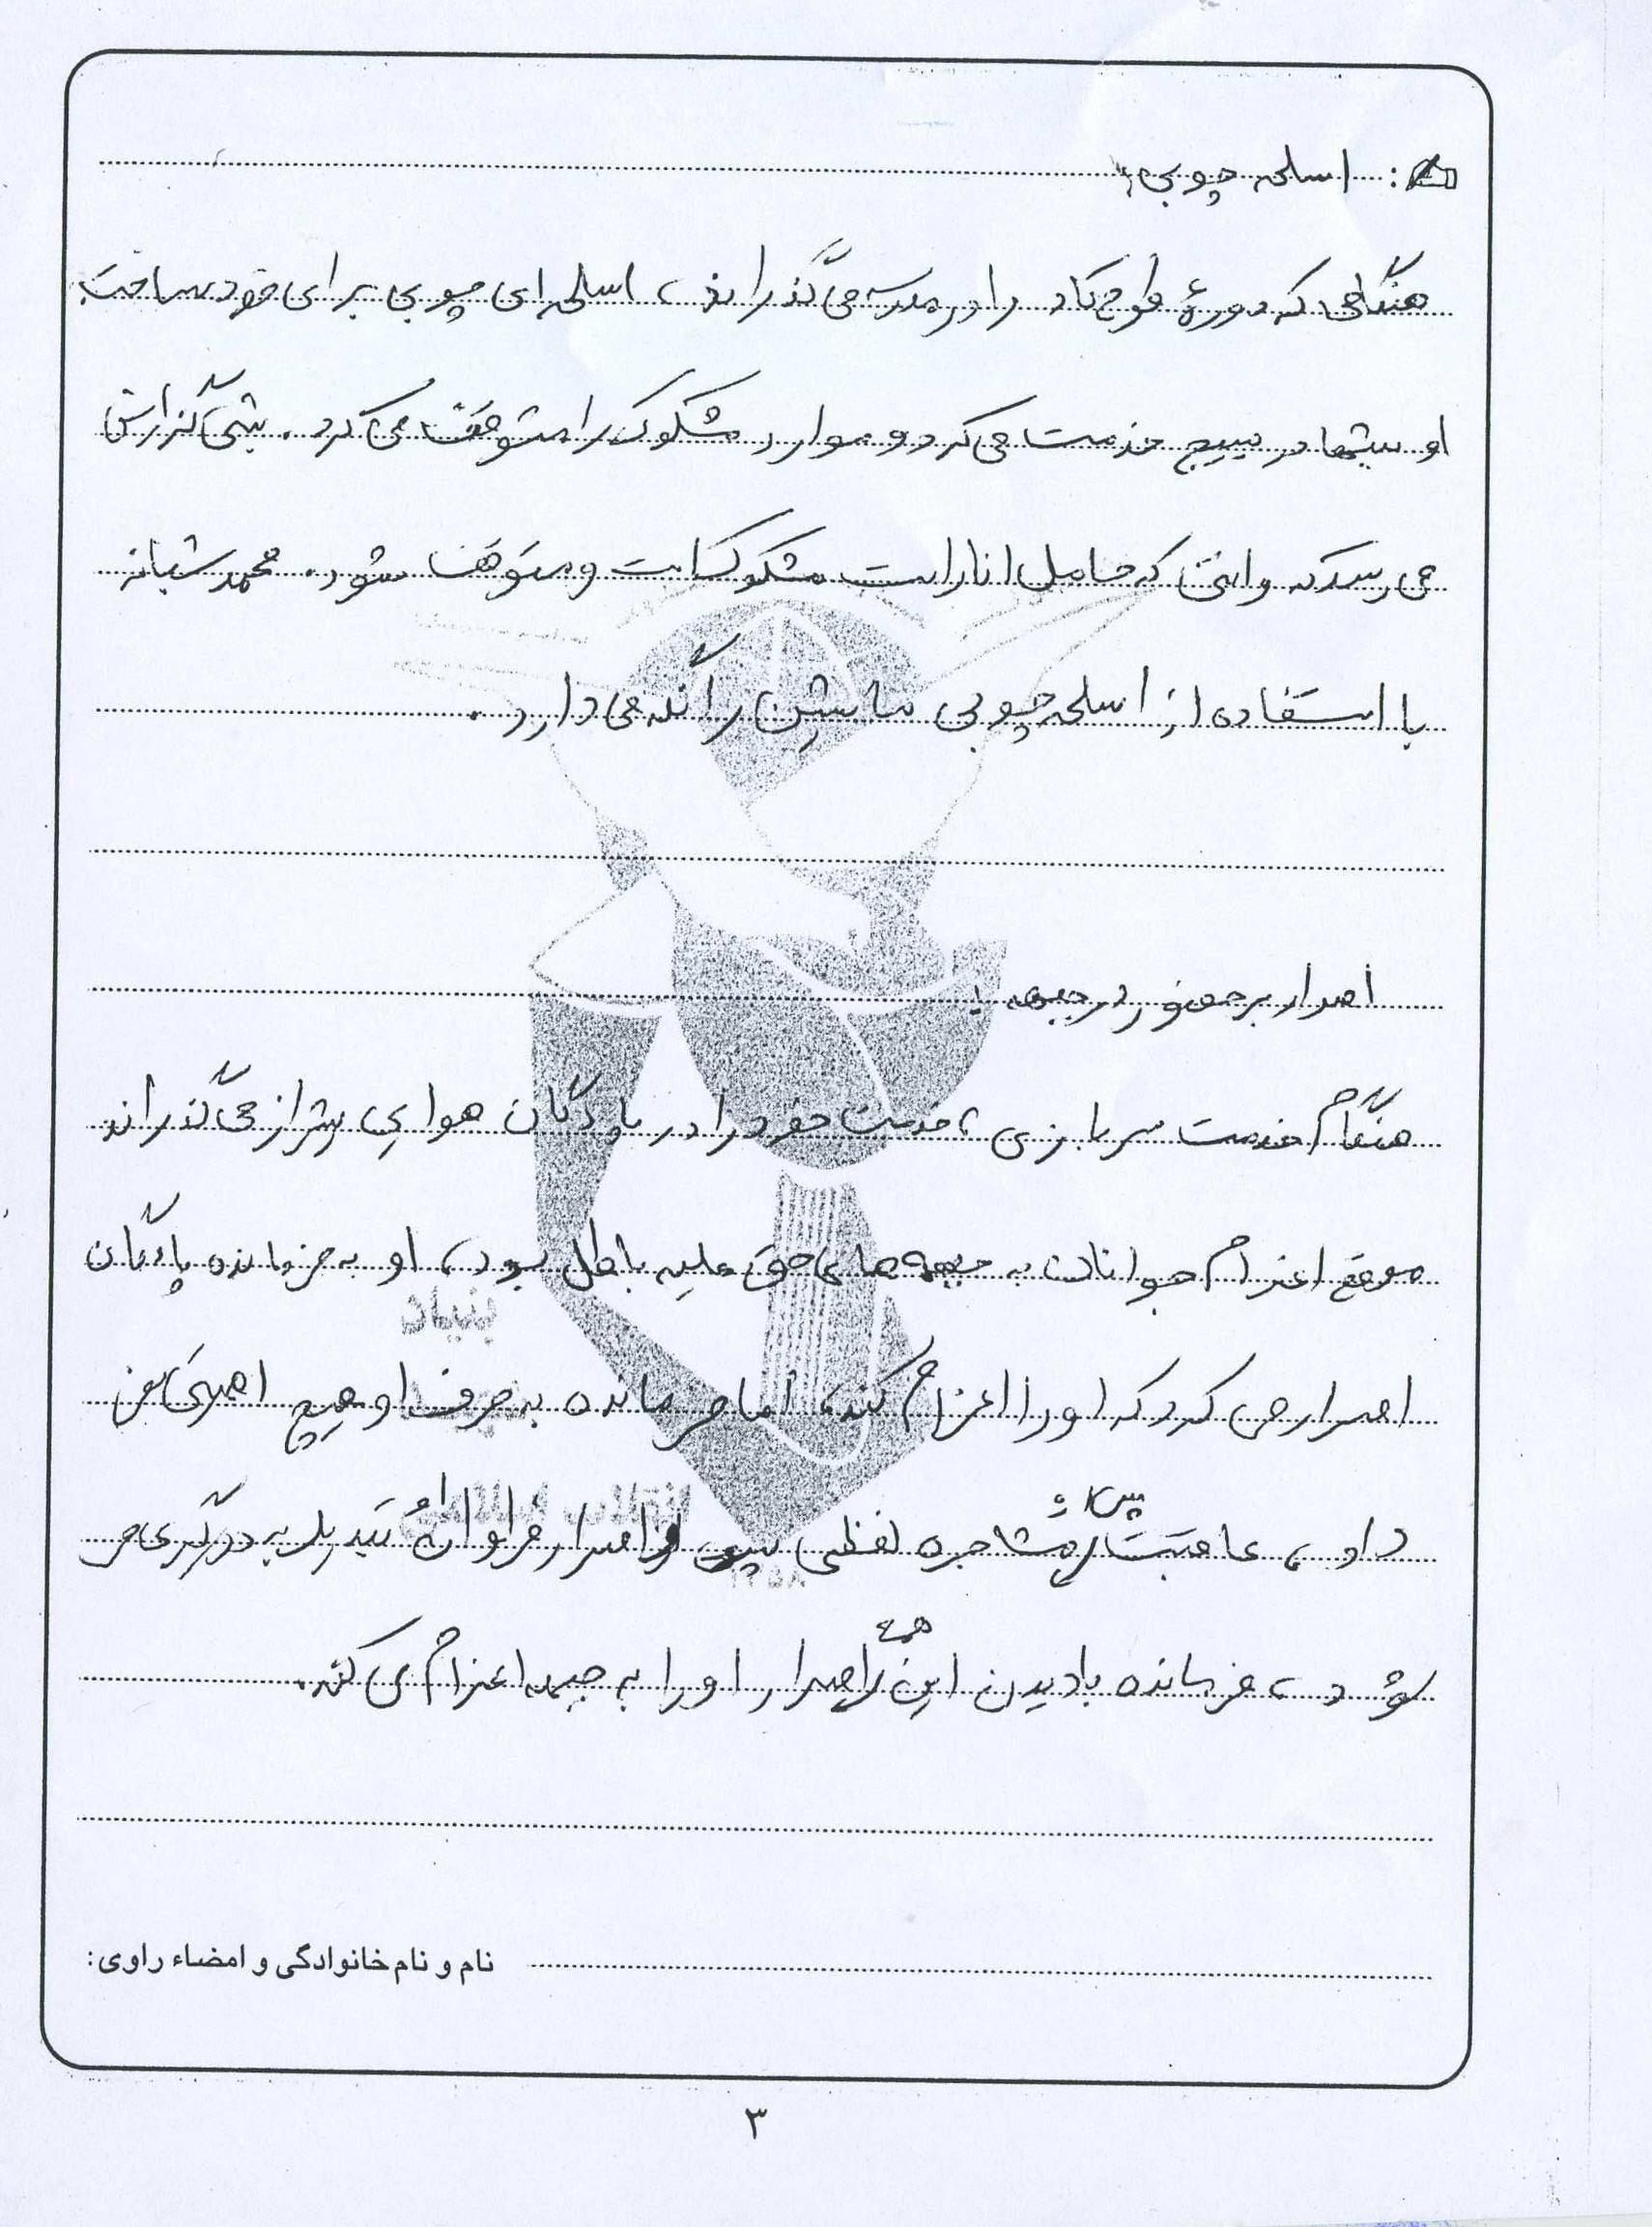 اسلحه چوبی:
هنگامی که دورهٔ طرح کاد را در مدرسه می گذراند، اسلحه ای چوبی برای خود ساخت
او شبها در بسیج خدمت می کرد و موارد مشکوک را متوقف می کرد. شبی گزارش
می رسد که وانتی که حامل انار است مشکوک است و متوقف شود. محمد شبانه
با استفاده از اسلحه چوبی ماشین را نگه می دارد.
اصرار بر حضور در جبهه:
هنگام خدمت سربازی، خدمت خود را در پادگان هوایی شیراز می گذراند
موقع اعزام جوانان به جبهه های حق علیه باطل بود، او به فرمانده پادگان
اصرار می کرد که او را اعزام کند، اما فرمانده به حرف او هیچ اهمیتی نمی
داد، عاقبت پس از مشاجره لفظی و اصرار فراوان او تبدیل به درگیری می
شود، فرمانده با دیدن این همه اصرار او را به جبهه اعزام می کند.
نام و نام خانوادگی و امضاء راوی:
بنیاد
انقلاب اسلامی
۳